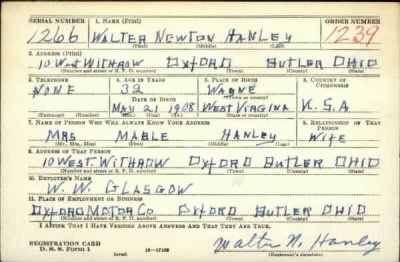 SERIAL NUMBER 1. NAME (Print) ORDER NUMBER
1266 WALTER NEWTON HANLEY 1239
(First) (Middle) (Last)
2. ADDRESS (Print)
10 West WITHROW OXFORD BUTLER OHIO
(Number and street or R. F. D. number) (Town) (County) (State)
3. TELEPHONE 4. AGE IN YEARS 5. PLACE OF BIRTH 6. COUNTRY OF CITIZENSHIP
NONE 32 WAYNE
DATE OF BIRTH (Town or county)
MAY 21 1908 WEST VIRGINIA U.S.A
(Exchange) (Number) (Mo.) (Day) (Yr.) (State or country)
7. NAME OF PERSON WHO WILL ALWAYS KNOW YOUR ADDRESS 8. RELATIONSHIP OF THAT PERSON
MRS MABLE HANLEY WIFE
(Mr., Mrs., Miss) (First) (Middle) (Last)
9. ADDRESS OF THAT PERSON
10 WEST. WITHROW OXFORD BUTLER OHIO
(Number and street or R. F. D. number) (Town) (County) (State)
10. EMPLOYER'S NAME
W. W. GLASGOW
11. PLACE OF EMPLOYMENT OR BUSINESS
OXFORD MOTOR CO OXFORD BUTLER OHIO
(Number and street or R. F. D. number) (Town) (County) (State)
I AFFIRM THAT I HAVE VERIFIED ABOVE ANSWERS AND THAT THEY ARE TRUE.
REGISTRATION CARD
D. S. S. Form 1 (over) Walter N. Hanley
(Registrant's signature)